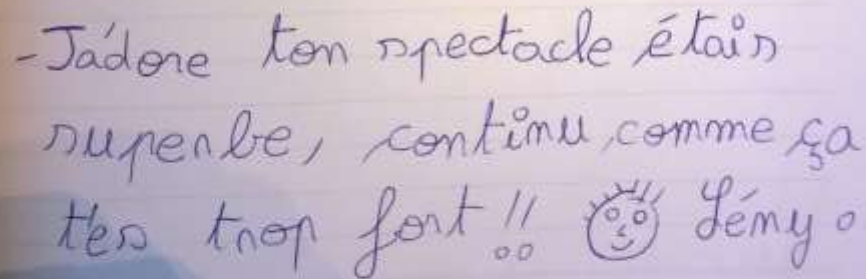 - J'adore ton spectacle étais
superbe, continu comme ça
t'es trop fort !! Lémy.